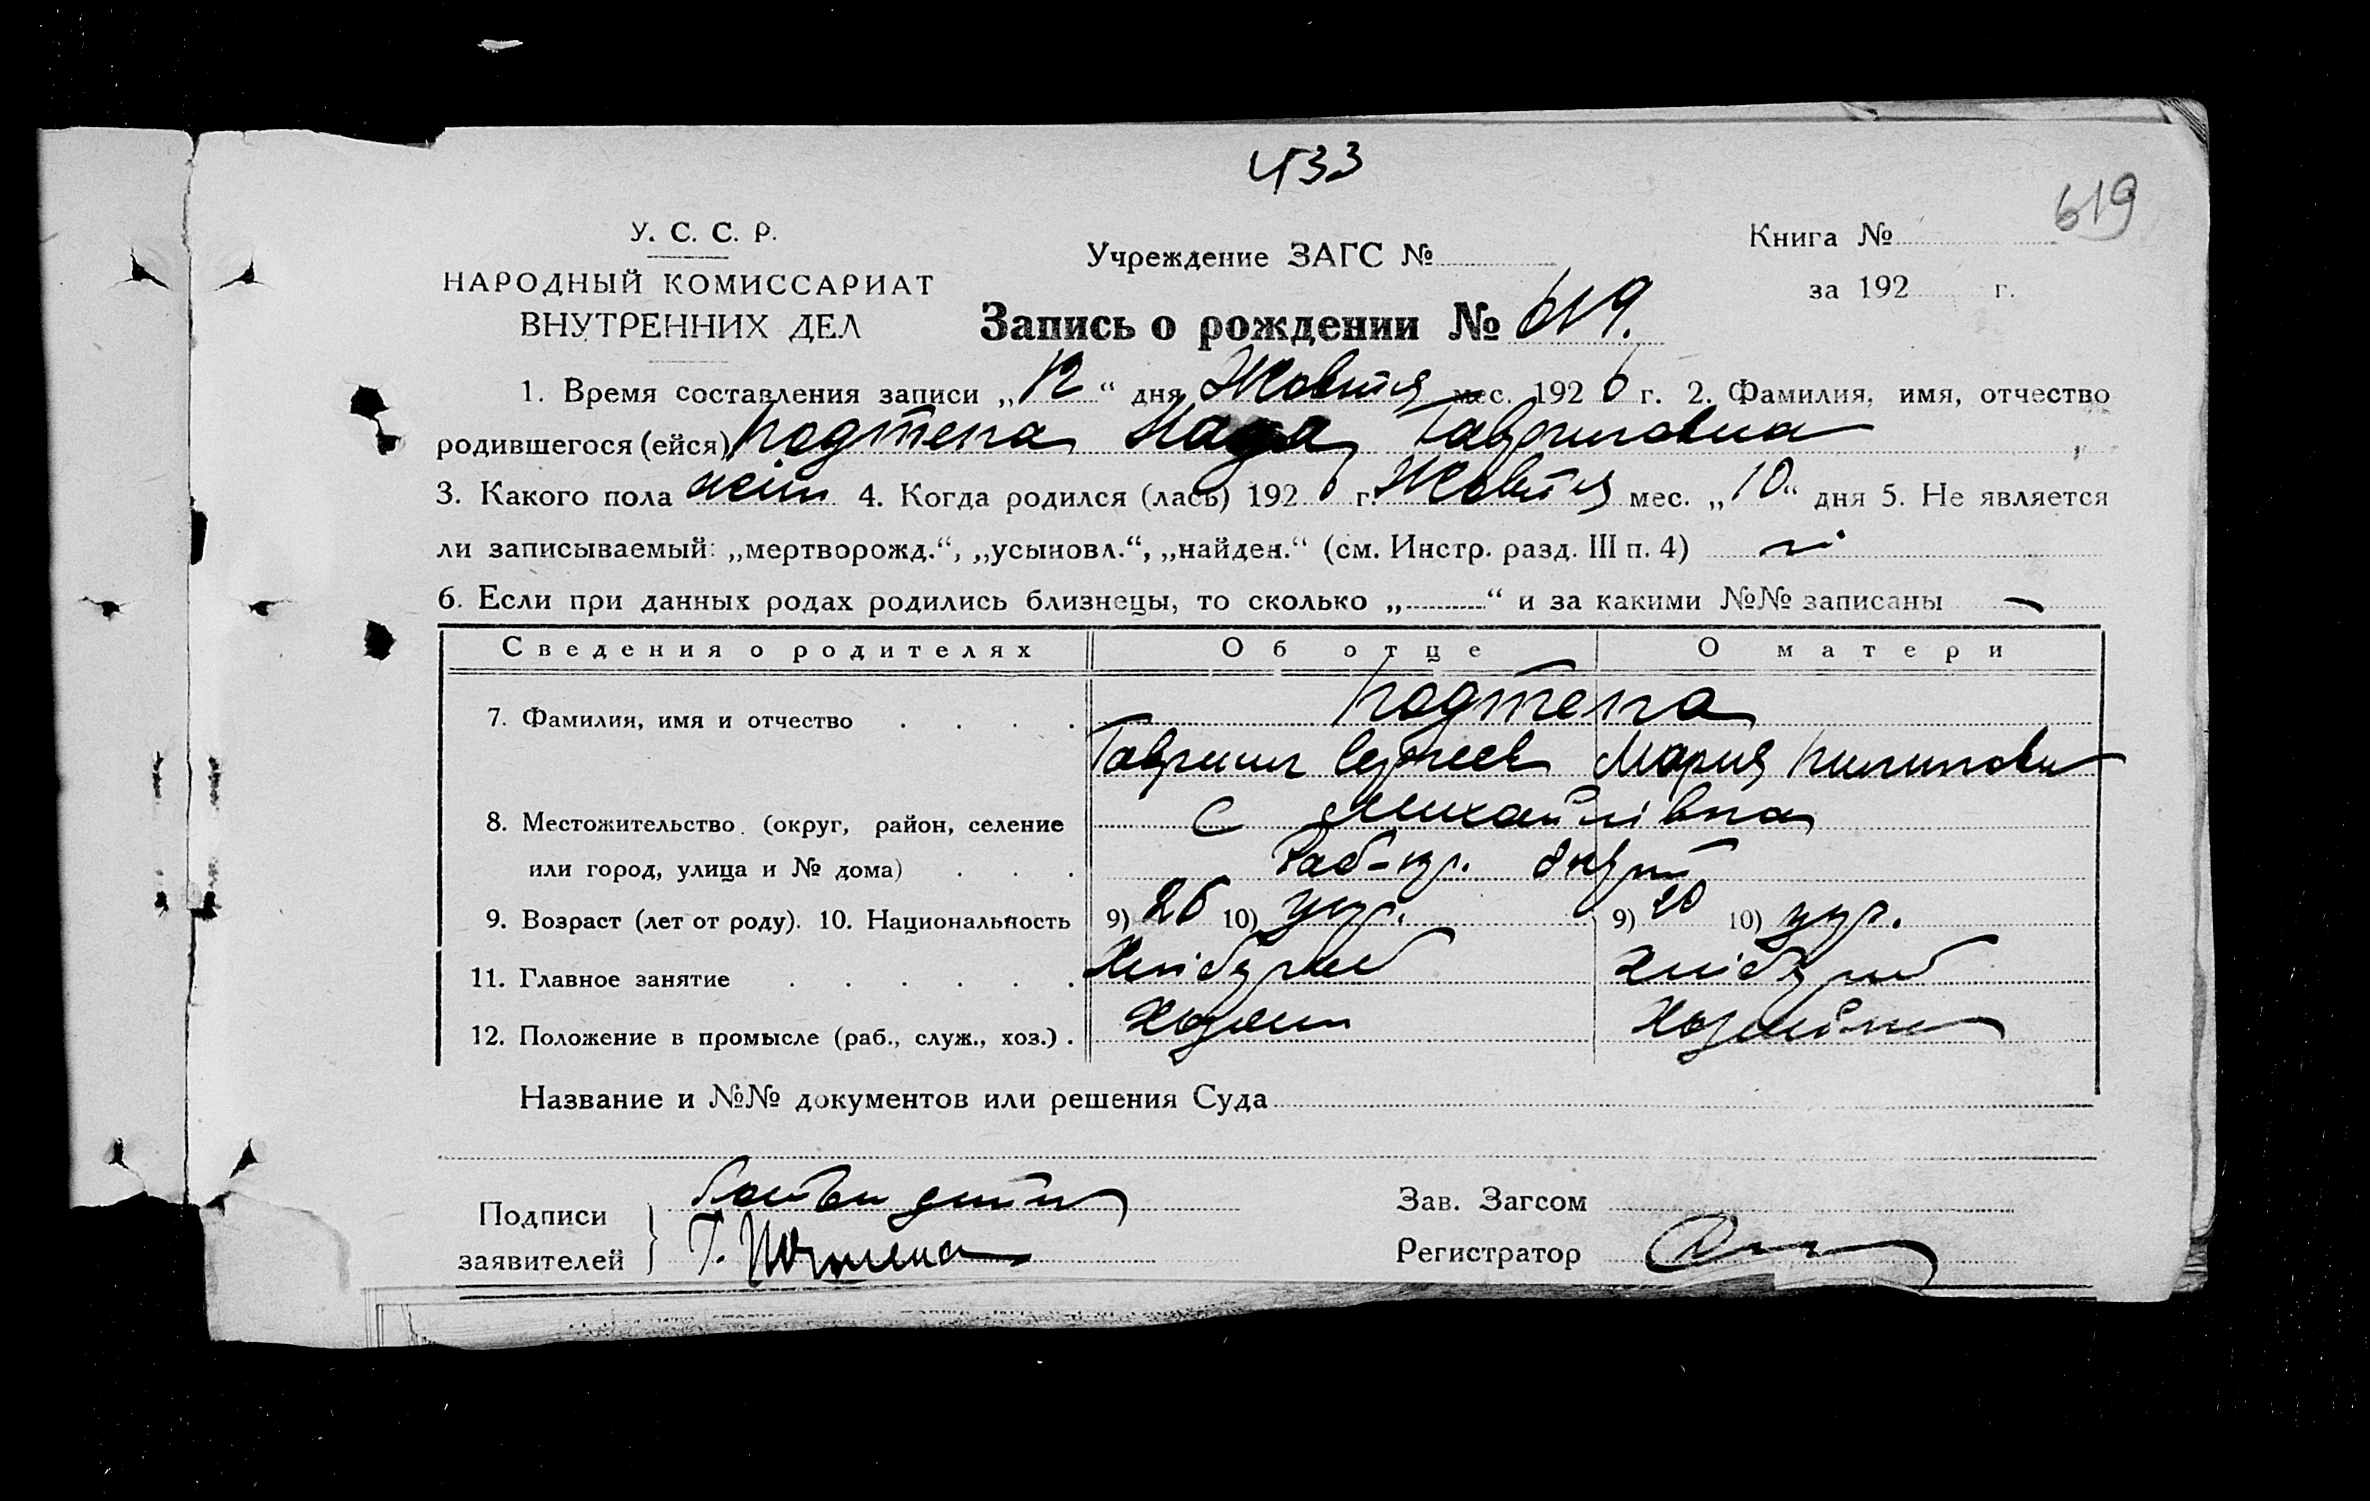 433
619
У. С. С. Р.
НАРОДНЫЙ КОМИССАРИАТ
ВНУТРЕННИХ ДЕЛ
Учреждение ЗАГС №
Книга №
за 192 г.
Запись о рождении № 619.
1. Время составления записи „12“ дня Жовтня мес. 1926 г. 2. Фамилия, имя, отчество
родившегося (ейся) Подтепа Надя Гавриловна
3. Какого пола жіт 4. Когда родился (лась) 1926 г. Жовтня мес. „10“ дня 5. Не является
ли записываемый: „мертворожд.“, „усыновл.“, „найден.“ (см. Инстр. разд. III п. 4) ні
6. Если при данных родах родились близнецы, то сколько „ “ и за какими №№ записаны —
Сведения о родителях Об отце О матери
7. Фамилия, имя и отчество . . . . Подтепа
Гаврило Сергеев Мария Пилипови
8. Местожительство (округ, район, селение С Михайлівка
или город, улица и № дома) . . . Раб-кр.
9. Возраст (лет от роду). 10. Национальность 9) 26 10) укр. 9) 20 10) укр.
11. Главное занятие . . . . . . Хлібороб хлібороб
12. Положение в промысле (раб., служ., хоз.) . Хозяин Хозяйка
Название и №№ документов или решения Суда
Подписи
заявителей
Батько дитини
Г. Потепа
Зав. Загсом
Регистратор